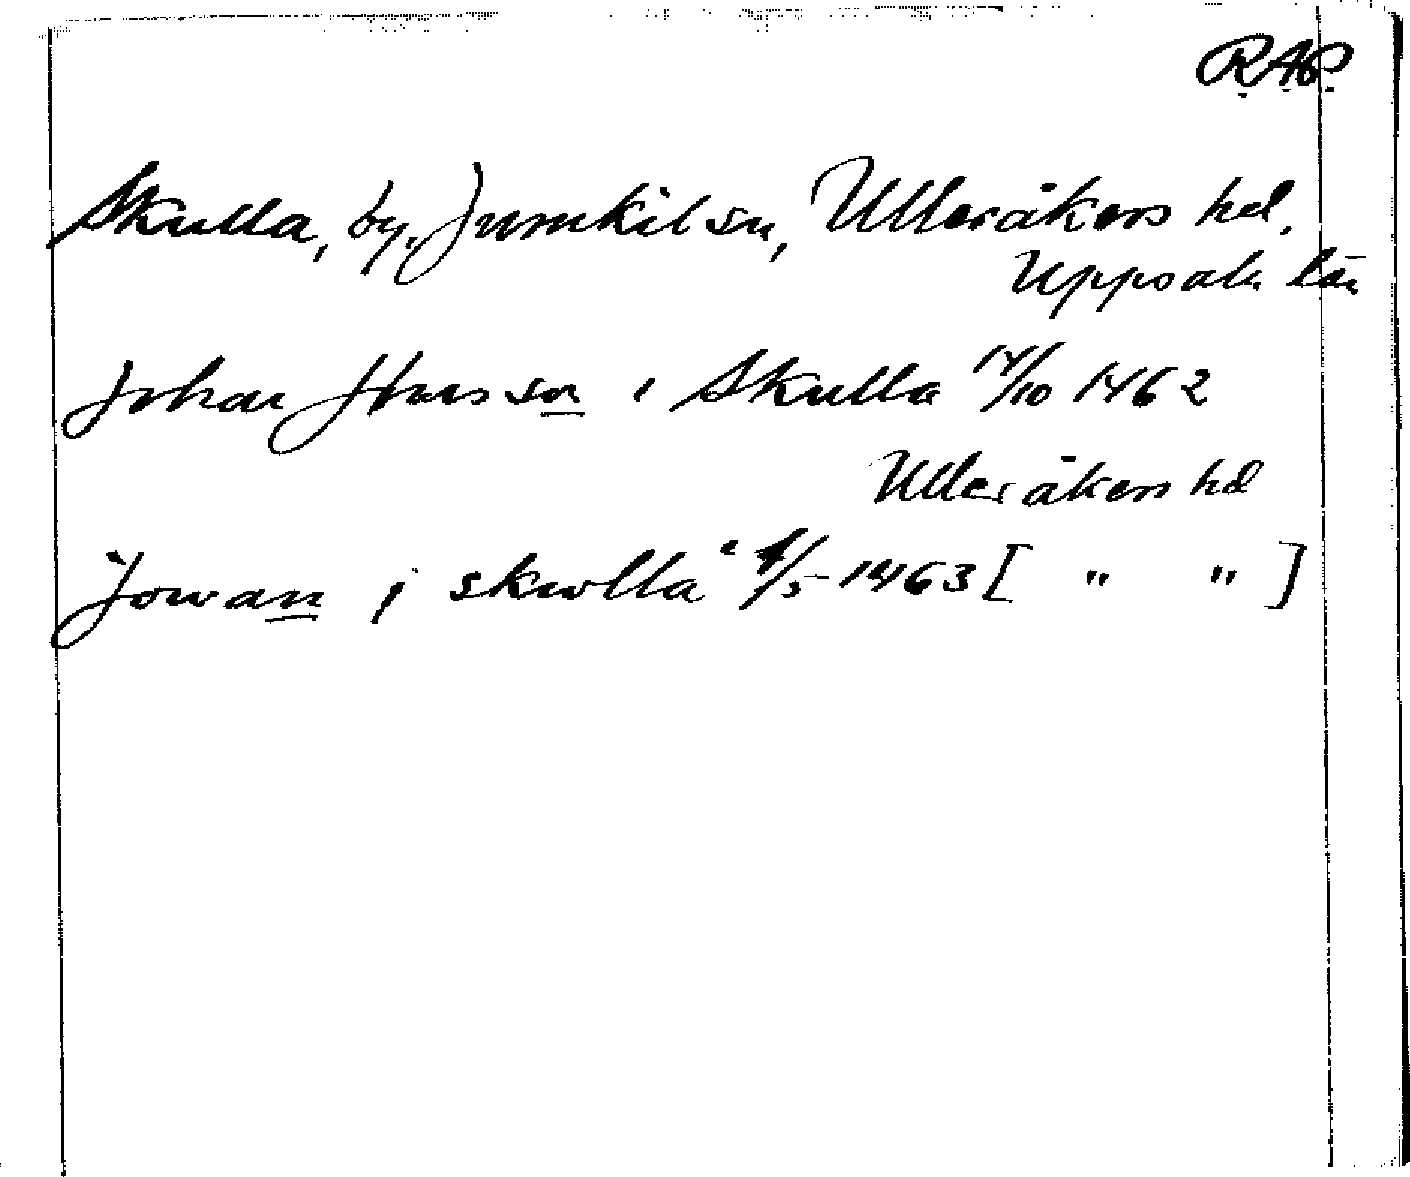 RAP
Skulla, by, Jumkil sn, Ulleråkers hd.
Uppsala län
Johan Jönsson i Skulla 14/10 1462
Ulleråkers hd
Jowan j skwlla 1/5 1463 [ " " ]